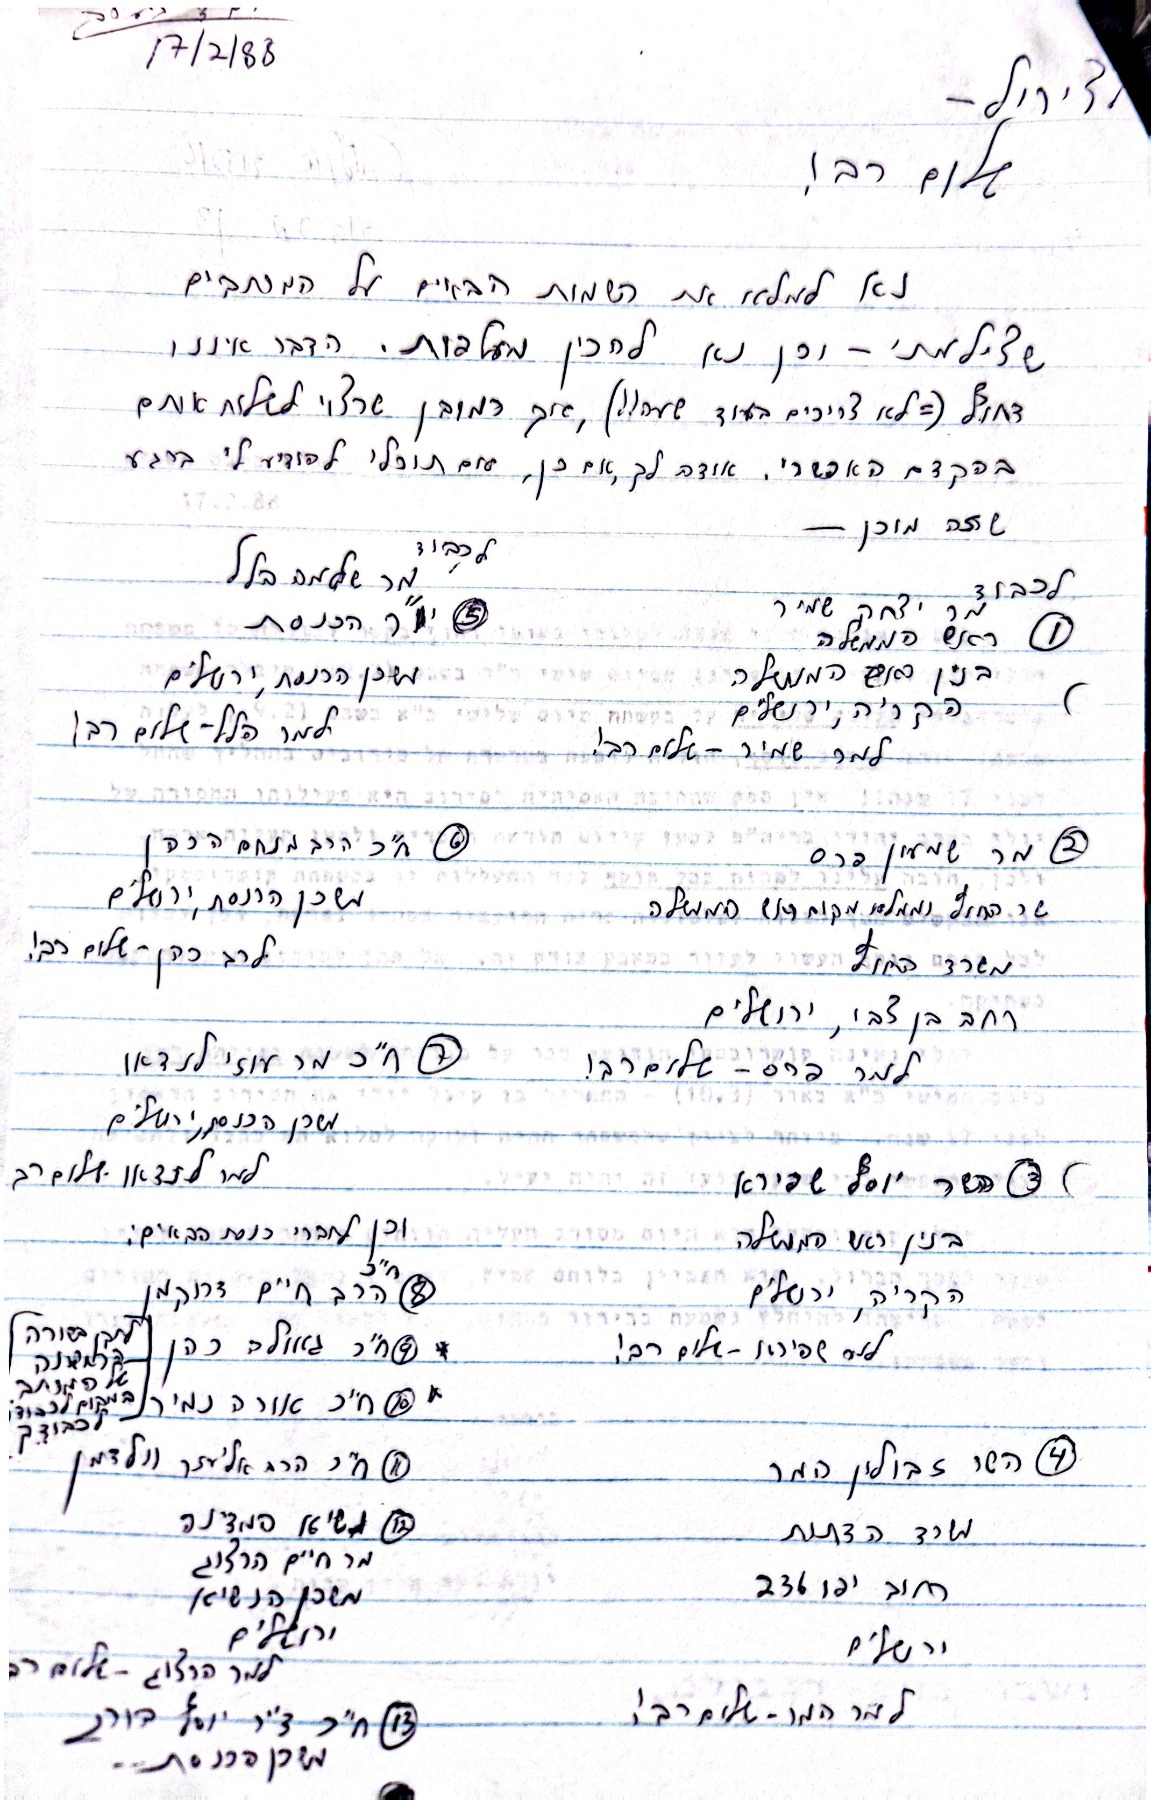 17/2/88
לצירול –
שלום רב!
נא למלא את השמות הבאים על המכתבים
שצילמתי – וכן נא להכין מעטפות. הדבר איננו
דחוף (= לא צריכים בעוד שעה!!), אך כמובן שרצוי לשלוח אותם
בהקדם האפשרי. אודה לך, אם כן, אם תוכלי להודיע לי ברגע
שזה מוכן –
לכבוד
מר יצחק שמיר
① ראש הממשלה
בנין ראש הממשלה
הקריה, ירושלים
למר שמיר – שלום רב!
② מר שמעון פרס
שר החוץ וממלא מקום ראש הממשלה
משרד החוץ
רחב בן צבי, ירושלים
למר פרס – שלום רב!
③ השר יוסף שפירא
בנין ראש הממשלה
הקריה, ירושלים
למר שפירא – שלום רב!
④ השר זבולון המר
משרד הדתות
רחוב יפו 236
ירושלים
למר המר – שלום רב!
לכבוד
מר שלמה הלל
⑤ יו"ר הכנסת
משכן הכנסת, ירושלים
למר הלל – שלום רב!
⑥ ח"כ הרב מנחם הכהן
משכן הכנסת, ירושלים
לרב כהן – שלום רב!
⑦ ח"כ מר עוזי לנדאו
משכן הכנסת, ירושלים
למר לנדאו – שלום רב
וכן לחברי כנסת הבאים:
⑧ ח"כ הרב חיים דרוקמן
* ⑨ ח"כ גאולה כהן
* ⑩ ח"כ אורה נמיר
בשורה
של המכתב
במקום לכבודו
לכבודך
⑪ ח"כ הרב אליעזר וולדמן
⑫ נשיא המדינה
מר חיים הרצוג
משכן הנשיא
ירושלים
למר הרצוג – שלום רב
⑬ ח"כ ד"ר יוסף בורג
משכן הכנסת...